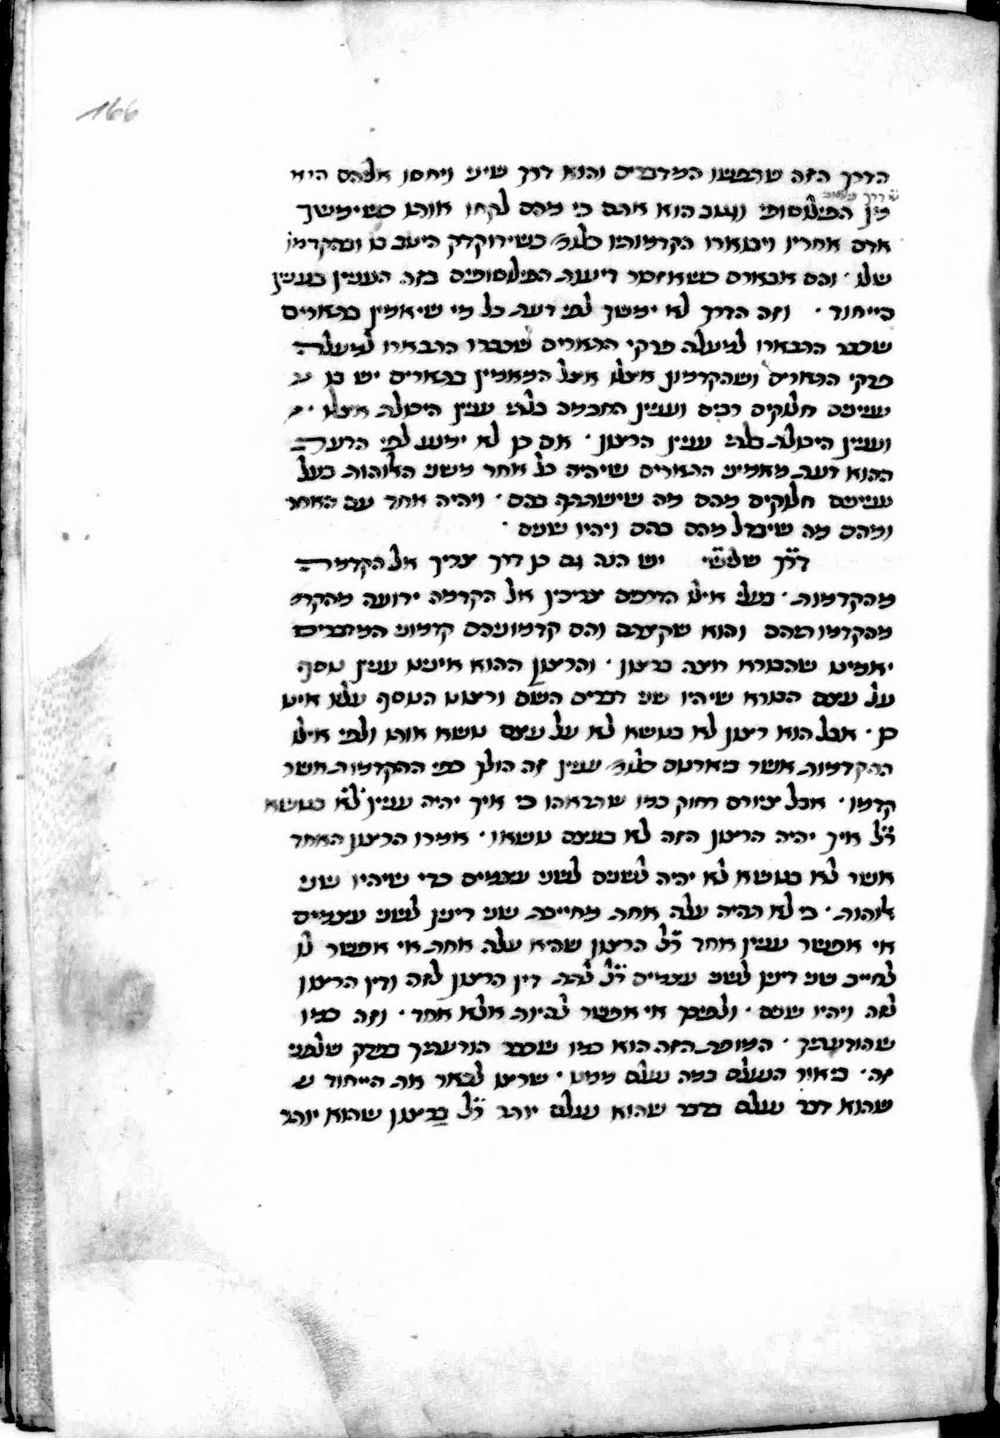 166
הדרך הזה שתפשו המדברים והוא דרך שיני ויחסו אליהם היא
מן הפילוסופי ואגב הוא אתם כי מהם לקחו אותו כשימשך
אדם אחריו ויבוארו הקדמותיו כלומ' כשידוקדק היטב בו ובהקדמו'
שלו · והם אבארם כשאזכור דיעות הפילוסופים בזה העניין בעניין
הייחוד · וזה הדרך לא ימשך לפי דעת כל מי שיאמין בתארים
שכבר התבארו למעלה פרקי התארים שכברו התבארו למעלה
פרקי התארים ושהקדמון אצלו אצל המאמין בתארים יש בו
עניינים חלוקים רבים ועניין החכמה בלתי עניין היכולת אצלו ·
ועניין היכולת בלתי עניין הרצון · אם כן לא ימנע לפי הדעת
ההוא דעת מאמיני התארים שיהיה כל אחד משני האלוהות בעל
עניינים חלוקים מהם מה שישתתף בהם · ויהיה אחד עם האחר
ומהם מה שיבדל מהם בהם ויהיו שנים ·
דרך שלשי יש הנה גם כן דרך צריך אל הקדמה
מהקדמות · בעלי אילו הדרכים צריכין אל הקדמה ידועה מהקדמ
מהקדמותיהם והוא שקצתם והם קדמוניהם קדמוני המדברים
יאמינו שהבורא רוצה ברצון · והרצון ההוא איננו עניין נוסף
על עצם הבורא שיהיו שני דברים השם ורצונו הנוסף עליו אינו
כן · אבל הוא רצון לא בנושא לא על עצם נושא אותו ולפי אילו
ההקדמות אשר ביארנום כלומ' עניין זה הולך כפי ההקדמות אשר
קדמו · אבל ציורם רחוק כמו שתראהו כי איך יהיה עניין לא בנושא
ר"ל איך יהיה הרצון הזה לא בעצם נושאו · אמרו הרצון האחד
אשר לא בנושא לא יהיה לשנים לשני עצמים כדי שיהיו שני
אלוהות · כי לא תהיה עלה אחת מחייבת שני דינין לשני עצמים
אי אפשר עניין אחד ר"ל הרצון שהיא עלה אחת אי אפשר לו
לחייב שני דינין לשני עצמים ר"ל לתת דין הרצון לזה ודין הרצון
לזה ויהיו שנים · ולפיכך אי אפשר להיות אלא אחד · וזה כמו
שהודעתיך · המופת הזה הוא כמו שכבר הודעתיך בפרק שלפני
זה · ביאור הנעלם במה שנעלם ממנו · שרצו לבאר את הייחוד
שהוא דבר נעלם בדבר שהוא נעלם יותר ר"ל ברצון שהוא יותר